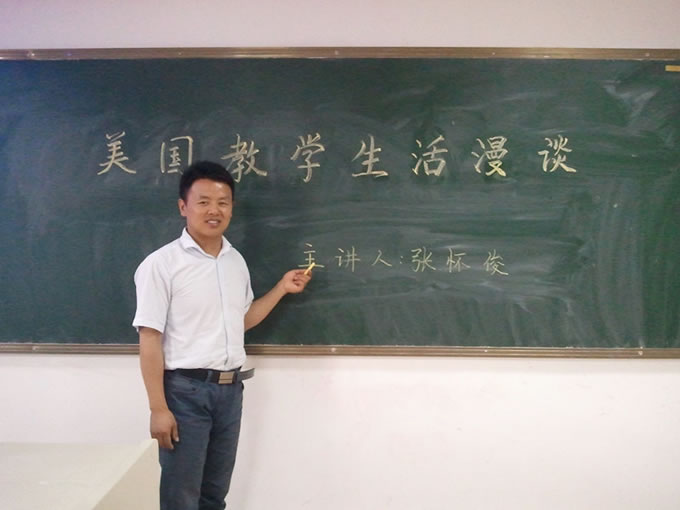 美国教学生活漫谈
主讲人:张怀俊